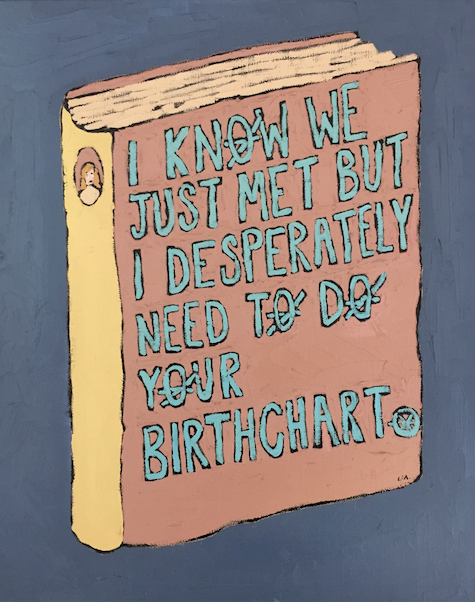 I KNOW WE
JUST MET BUT
I DESPERATELY
NEED TO DO
YOUR
BIRTHCHART.